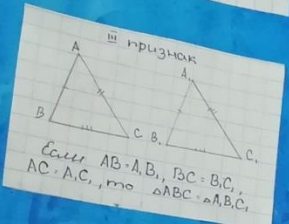 III признак
A
A₁
B
C
B₁
C₁
Если AB=A₁B₁, BC=B₁C₁,
AC=A₁C₁, то △ABC=△A₁B₁C₁